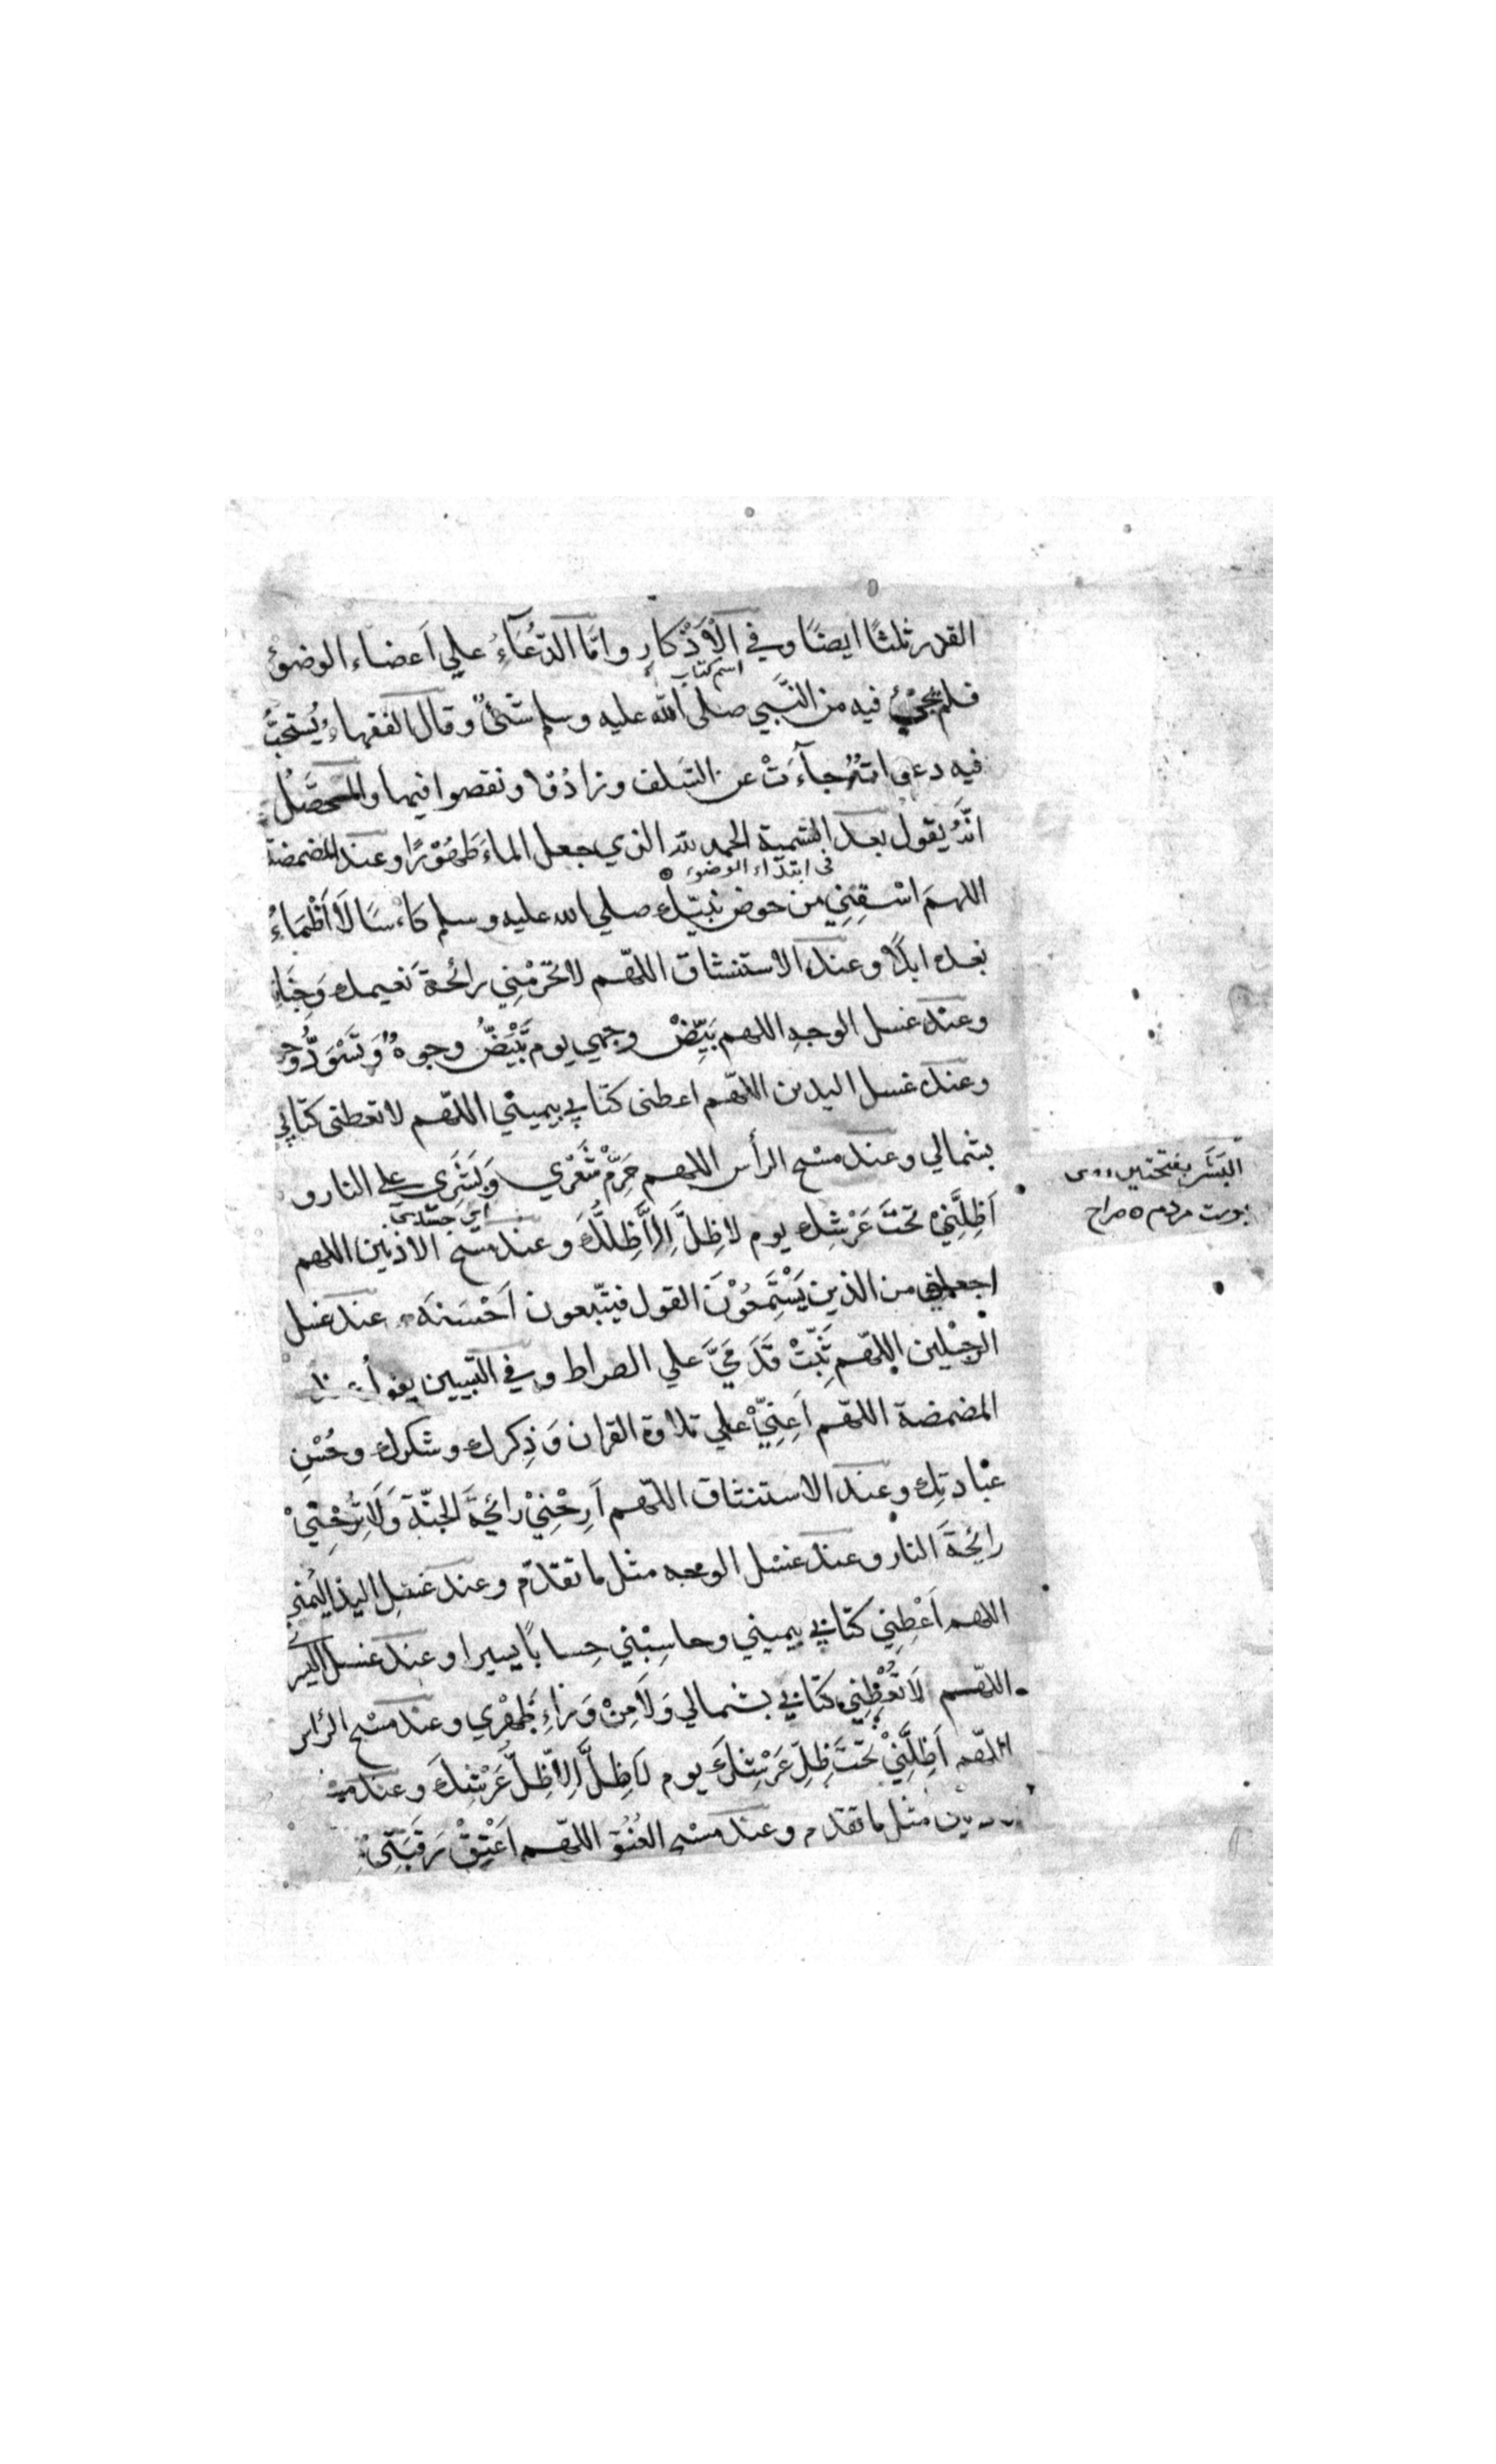 القدر ثلثًا ايضًا وفي الْاَذْكارِ واَمَّا الدُّعَآءُ علي اَعضاء الوضوءُ
اسم كتاب
فلم يجئْ فيه من النَّبي صلى الله عليه وسلم شئٌ وقال الفقهاء يُستحبُّ
فيه دعوات جآءَتْ عن السَلف وزادُوا ونقصوا فيها والمتحصَّلُ
انَّهُ يقول بعد التسمية الحمد لله الذي جعل الماءَ طَهُوْرًا وعند المضمضة
في ابتداء الوضوء
اللهمَ اسْقِنِي من حوض نبيّك صلي الله عليه وسلم كاْسًا لَا اَظْمَاءُ
بعده ابدًا وعند الاستنشاق اللهّم لا تحرّمْنِي رائحةَ نَعيمك وَجَنَا
وعند غسل الوجهِ اللهم بَيِّضْ وجهي يوم تَبْيَضُّ وجوهٌ وَتَسْوَدُّ وُجو
وعند غسل اليدين اللهّم اعطني كتابي بيميني اللهّم لا تعطني كتابي
بشمالي وعند مسْح الرأس اللهم حَرِّمْ شَعْرِي وَبَشَرِي علي النار و
اي جسدي
اَظِلَّنِيْ تحْتَ عَرْشِك يوم لا ظِلَّ اِلَّا ظِلُّكَ وعند مسْح الاذنين اللهم
اجعلني من الذين يَسْتَمِعُوْنَ القول فيتّبعون اَحْسَنَهَ وعند غسل
الرِجْلين اللهّم ثَبِّتْ قَدَمَيَّ علي الصراط وفي التبيين يقول
المضمضة اللهّم اَعِنِّيْ علي تلاوة القران وَذِكرك وشكرك وحُسْنِ
عبادتِك وعند الاستنشاق اللهّم اَرِحْنِيْ رائحةَ الجنّة وَلَا تُرِحْنِيْ
رائحةَ النار وعند غسْل الوجه مثل ما تقدّم وعند غسْلِ اليد اليُمْني
اللهم اَعْطِنِي كتابي بيميني وحاسِبْني حِسابًا يسيرا وعند غسل اليسر
اللهّم لَا تُعْطِنِي كتابي بشمالي وَلَا مِنْ وَراءِ ظَهْرِي وعند مسْح الرأس
اللهّم اَظِلَّنِيْ تَحْتَ ظِلِّ عَرْشِكَ يوم لَا ظِلَّ اِلّا ظِلُّ عَرْشِكَ وعند
مثل ما تقدم وعند مسْح العُنُق اللهّم اَعْتِقْ رَقَبَتِيْ
البَشَر بفتحتين
پوست مردم ٥ صراح